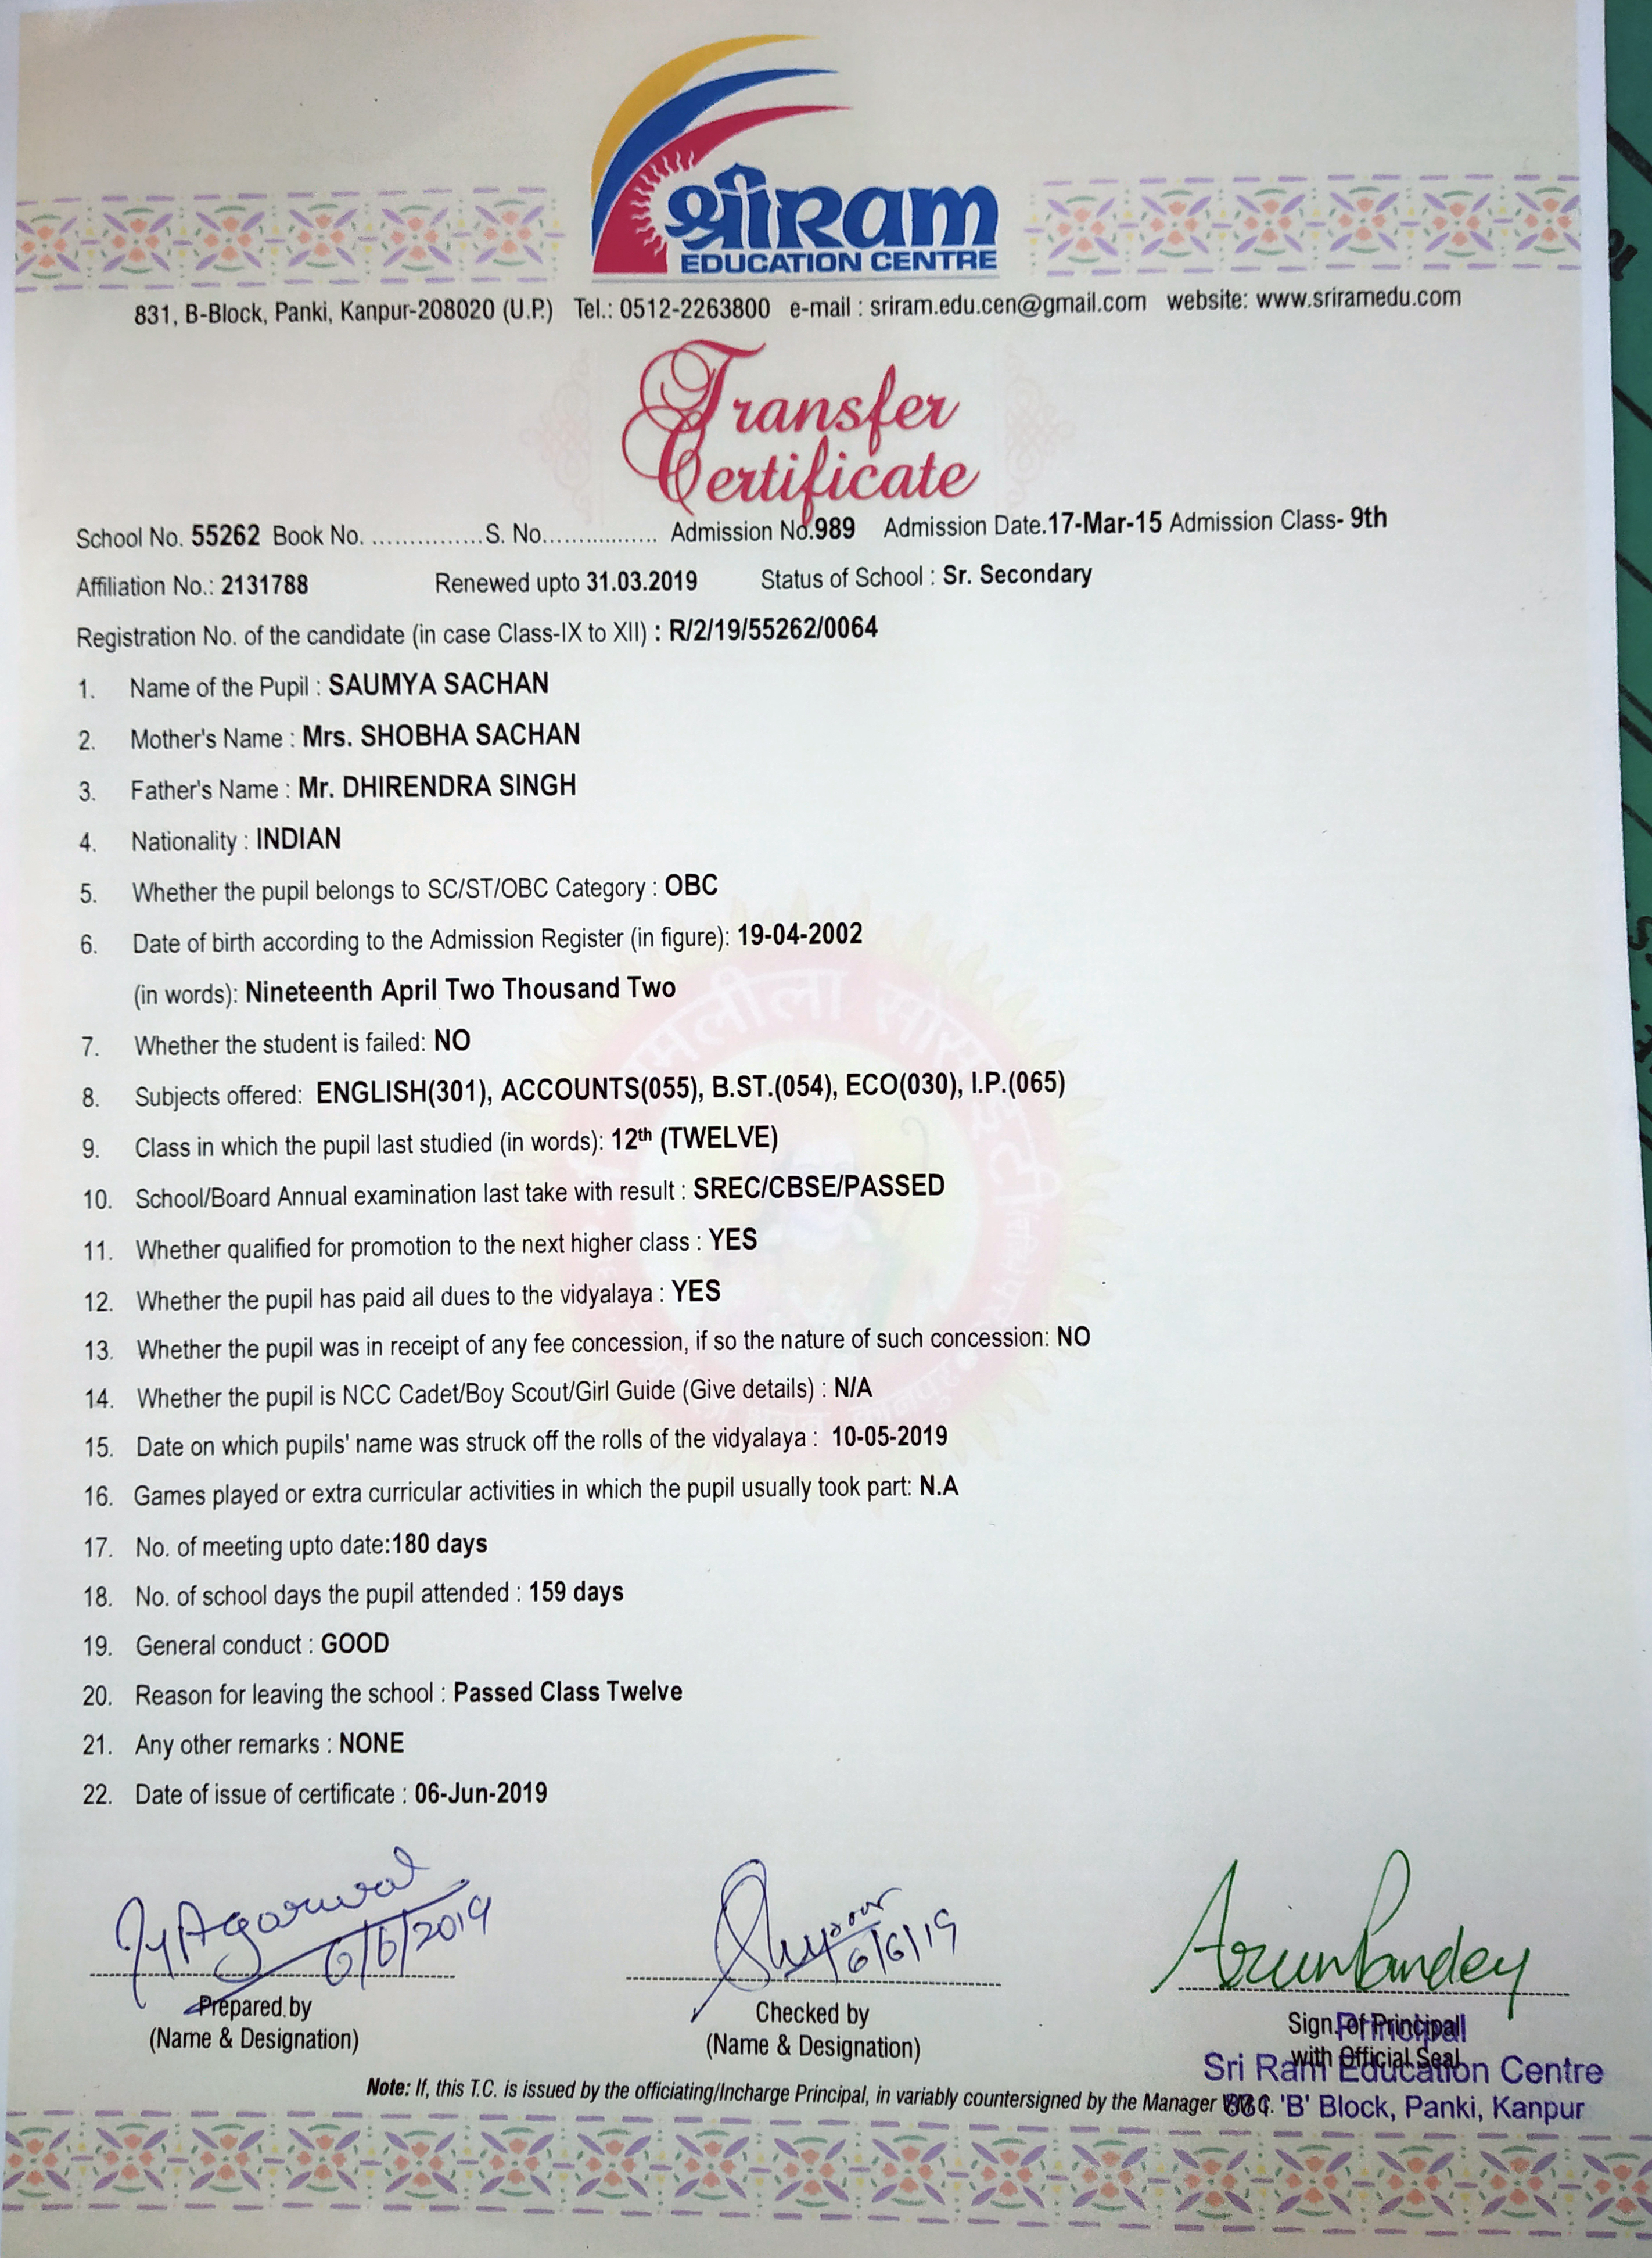 श्रीRAM
EDUCATION CENTRE
831, B-Block, Panki, Kanpur-208020 (U.P.) Tel.: 0512-2263800 e-mail : sriram.edu.cen@gmail.com website: www.sriramedu.com
Transfer
Certificate
School No. 55262 Book No. ............... S. No. ................. Admission No.989 Admission Date.17-Mar-15 Admission Class- 9th
Affiliation No.: 2131788 Renewed upto 31.03.2019 Status of School : Sr. Secondary
Registration No. of the candidate (in case Class-IX to XII) : R/2/19/55262/0064
1. Name of the Pupil : SAUMYA SACHAN
2. Mother's Name : Mrs. SHOBHA SACHAN
3. Father's Name : Mr. DHIRENDRA SINGH
4. Nationality : INDIAN
5. Whether the pupil belongs to SC/ST/OBC Category : OBC
6. Date of birth according to the Admission Register (in figure): 19-04-2002
(in words): Nineteenth April Two Thousand Two
7. Whether the student is failed: NO
8. Subjects offered: ENGLISH(301), ACCOUNTS(055), B.ST.(054), ECO(030), I.P.(065)
9. Class in which the pupil last studied (in words): 12th (TWELVE)
10. School/Board Annual examination last take with result : SREC/CBSE/PASSED
11. Whether qualified for promotion to the next higher class : YES
12. Whether the pupil has paid all dues to the vidyalaya : YES
13. Whether the pupil was in receipt of any fee concession, if so the nature of such concession: NO
14. Whether the pupil is NCC Cadet/Boy Scout/Girl Guide (Give details) : N/A
15. Date on which pupils' name was struck off the rolls of the vidyalaya : 10-05-2019
16. Games played or extra curricular activities in which the pupil usually took part: N.A
17. No. of meeting upto date:180 days
18. No. of school days the pupil attended : 159 days
19. General conduct : GOOD
20. Reason for leaving the school : Passed Class Twelve
21. Any other remarks : NONE
22. Date of issue of certificate : 06-Jun-2019
Agarwal
6/6/2019
6/6/19
Arun Pandey
Prepared by
(Name & Designation)
Checked by
(Name & Designation)
Sign. of Principal
with Official Seal
Principal
Sri Ram Education Centre
831 'B' Block, Panki, Kanpur
Note: If, this T.C. is issued by the officiating/Incharge Principal, in variably countersigned by the Manager V.M.C.